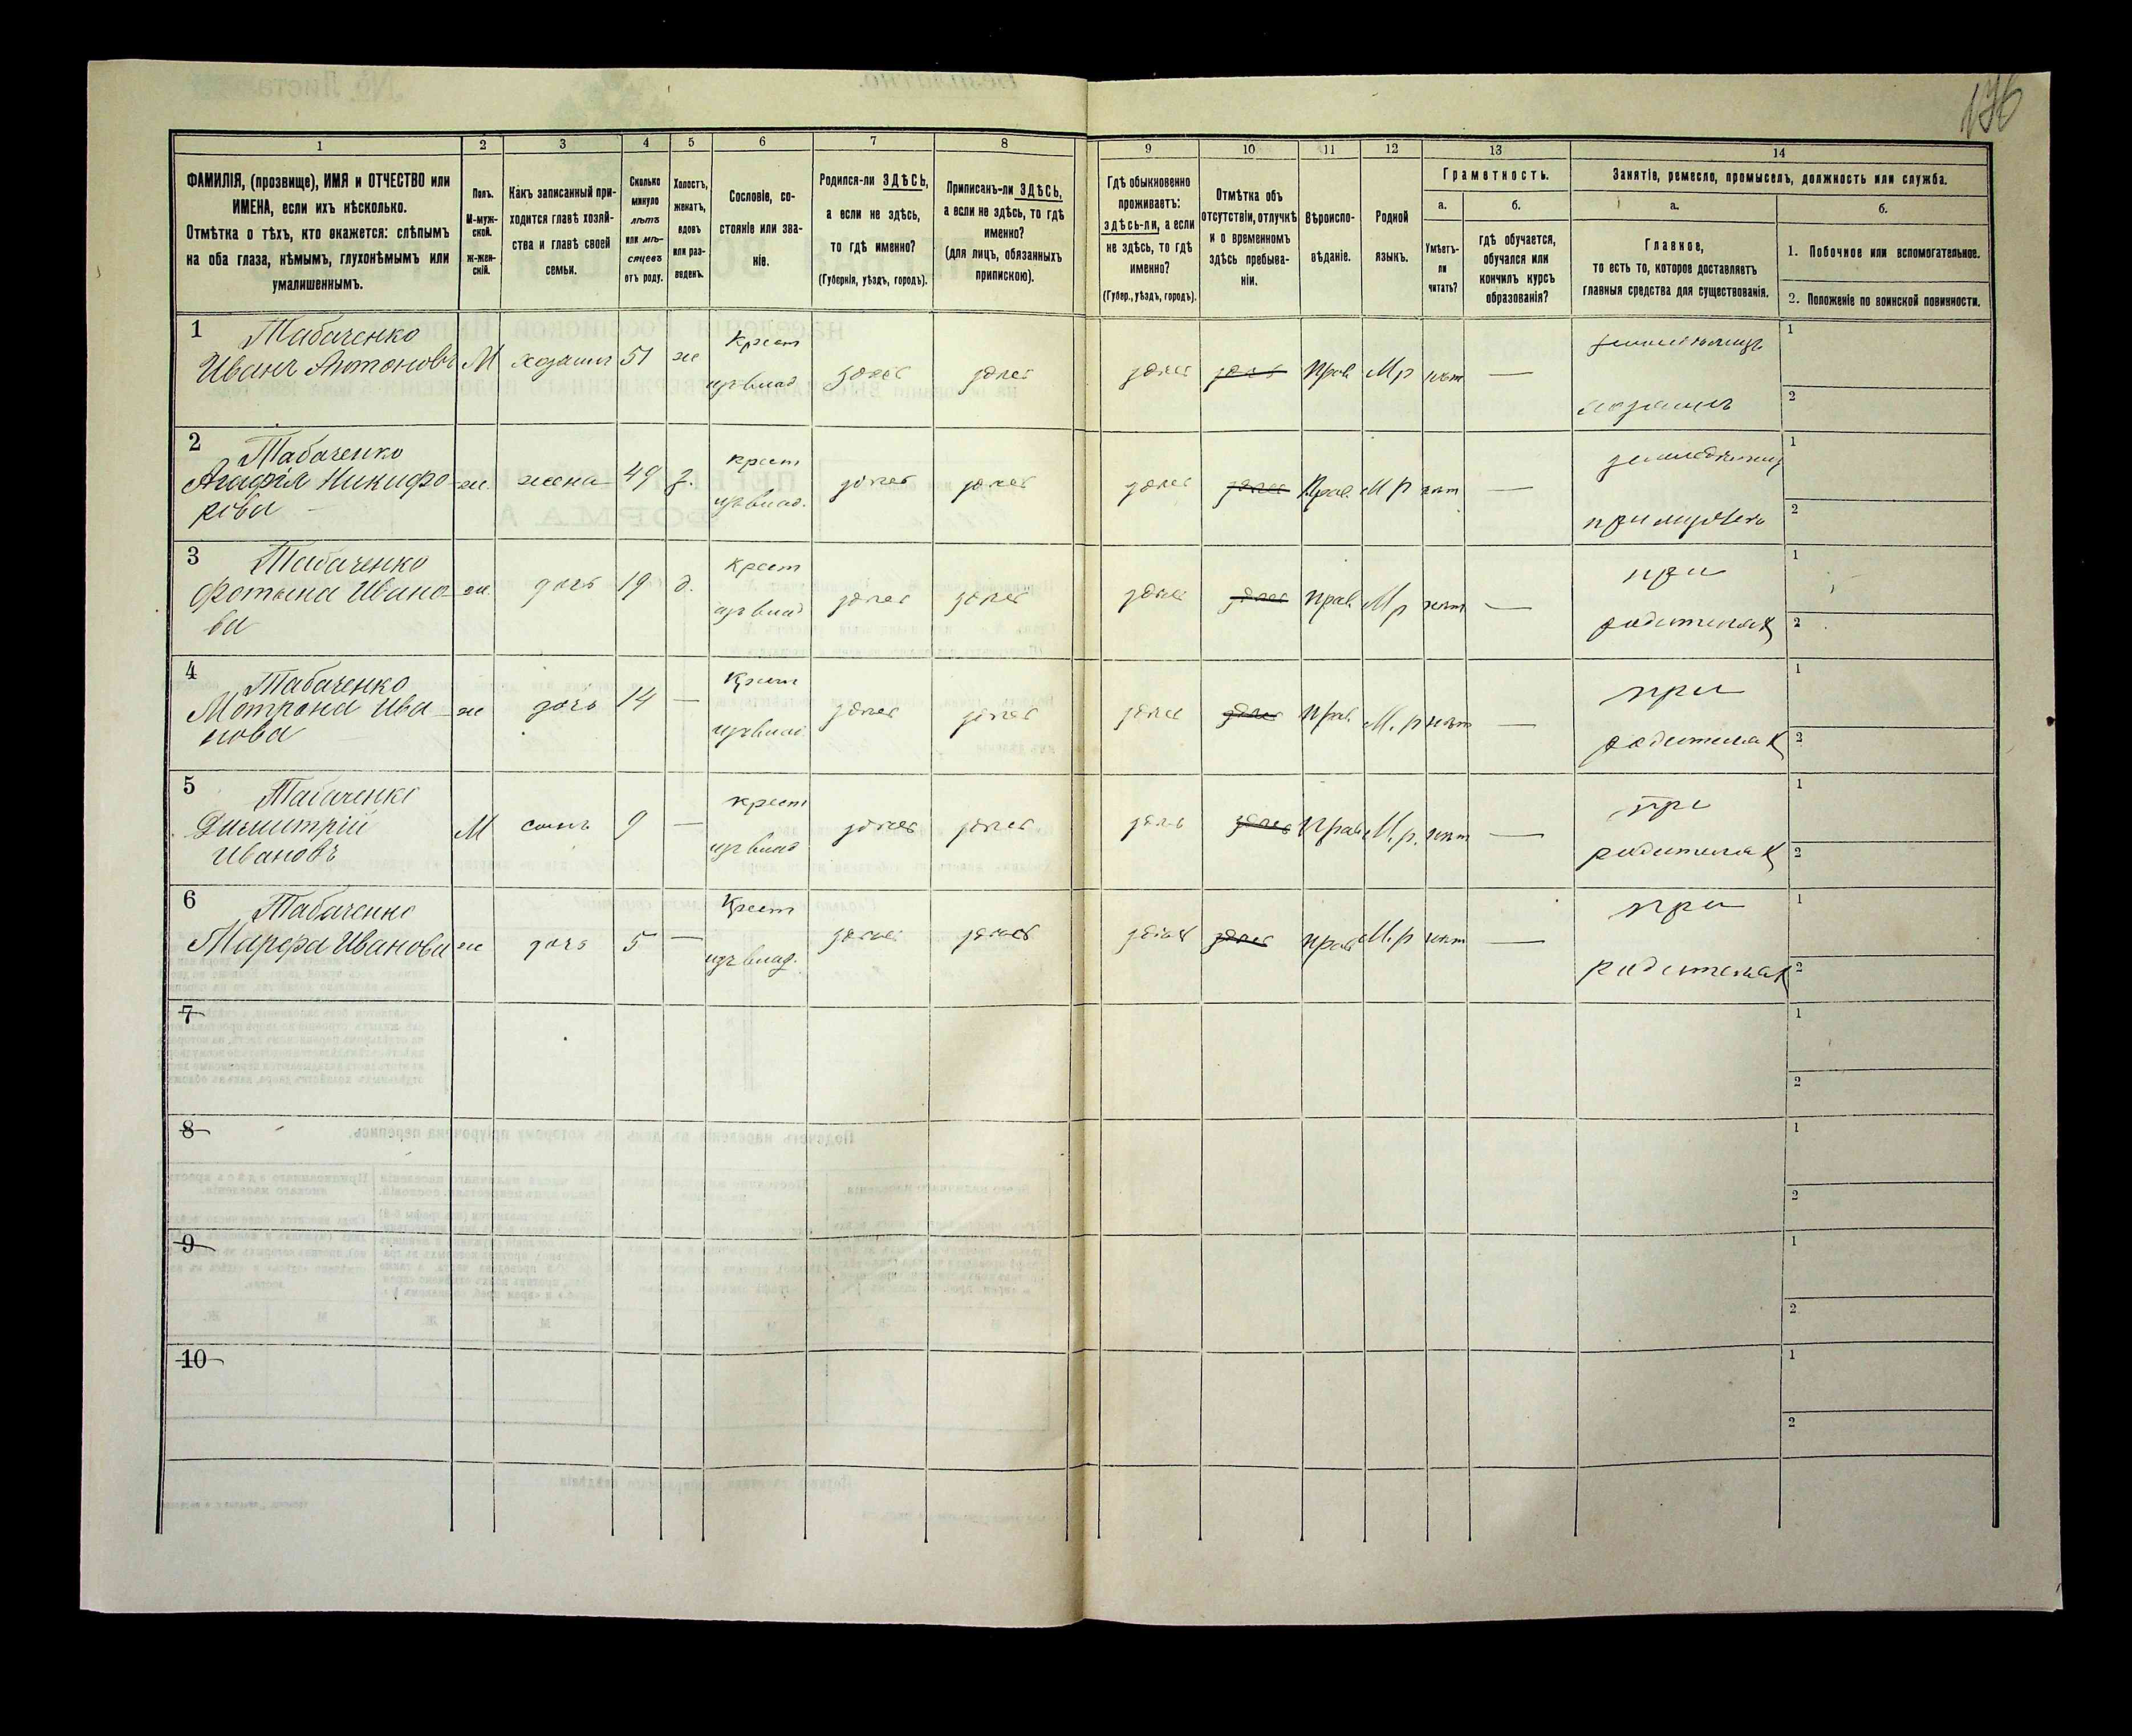 176
1
2
3
4
5
6
7
8
9
10
11
12
13
14
ФАМИЛІЯ, (прозвище), ИМЯ и ОТЧЕСТВО или
ИМЕНА, если ихъ нѣсколько.
Отмѣтка о тѣхъ, кто окажется: слѣпымъ
на оба глаза, нѣмымъ, глухонѣмымъ или
умалишеннымъ.
Полъ.
М-муж-
ской.
Ж-жен-
скій.
Какъ записанный при-
ходится главѣ хозяй-
ства и главѣ своей
семьи.
Сколько
минуло
лѣтъ
или мѣ-
сяцевъ
отъ роду.
Холостъ,
женатъ,
вдовъ
или раз-
веденъ.
Сословіе, со-
стояніе или зва-
ніе.
Родился-ли ЗДѢСЬ,
а если не здѣсь,
то гдѣ именно?
(Губернія, уѣздъ, городъ).
Приписанъ-ли ЗДѢСЬ,
а если не здѣсь, то гдѣ
именно?
(для лицъ, обязанныхъ
припискою).
Гдѣ обыкновенно
проживаетъ:
здѣсь-ли, а если
не здѣсь, то гдѣ
именно?
(Губер., уѣздъ, городъ).
Отмѣтка объ
отсутствіи, отлучкѣ
и о временномъ
здѣсь пребыва-
ніи.
Вѣроиспо-
вѣданіе.
Родной
языкъ.
Грамотность.
а.
Умѣетъ-
ли
читать?
б.
гдѣ обучается,
обучался или
кончилъ курсъ
образованія?
Занятіе, ремесло, промыселъ, должность или служба.
а.
Главное,
то есть то, которое доставляетъ
главныя средства для существованія.
б.
1. Побочное или вспомогательное.
2. Положеніе по воинской повинности.
1 Табаченко крест земледѣлецъ 1
Иванъ Антоновъ М хозяинъ 51 ж изъ влад здѣсь здѣсь здѣсь здѣсь прав. Мр нѣт —
хозяинъ 2
2 Табаченко крест земледѣлец 1
Агафія Никифо- ж. жена 49 з. изъ влад. здѣсь здѣсь здѣсь здѣсь Прав. М р нѣт —
рова при мужѣ 2
3 Табаченко крест при 1
Фотына Ивано- ж. дочь 19 д. изъ влад здѣсь здѣсь здѣсь здѣсь прав. Мр нѣт —
ва родителях 2
4 Табаченко Крест при 1
Мотрона Ива- ж дочь 14 — изъ влад. здѣсь здѣсь здѣсь здѣсь прав. М. р нѣт —
нова родителях 2
5 Табаченко крест при 1
Димитрій М сынъ 9 — изъ влад здѣсь здѣсь здѣсь здѣсь прав М. р. нѣт —
Ивановъ родителях 2
6 Табаченко Крест при 1
Марфа Иванова ж дочь 5 — изъ влад. здѣсь здѣсь здѣсь здѣсь прав М. р нѣт —
родителях 2
7 1
2
8 1
2
9 1
2
10 1
2